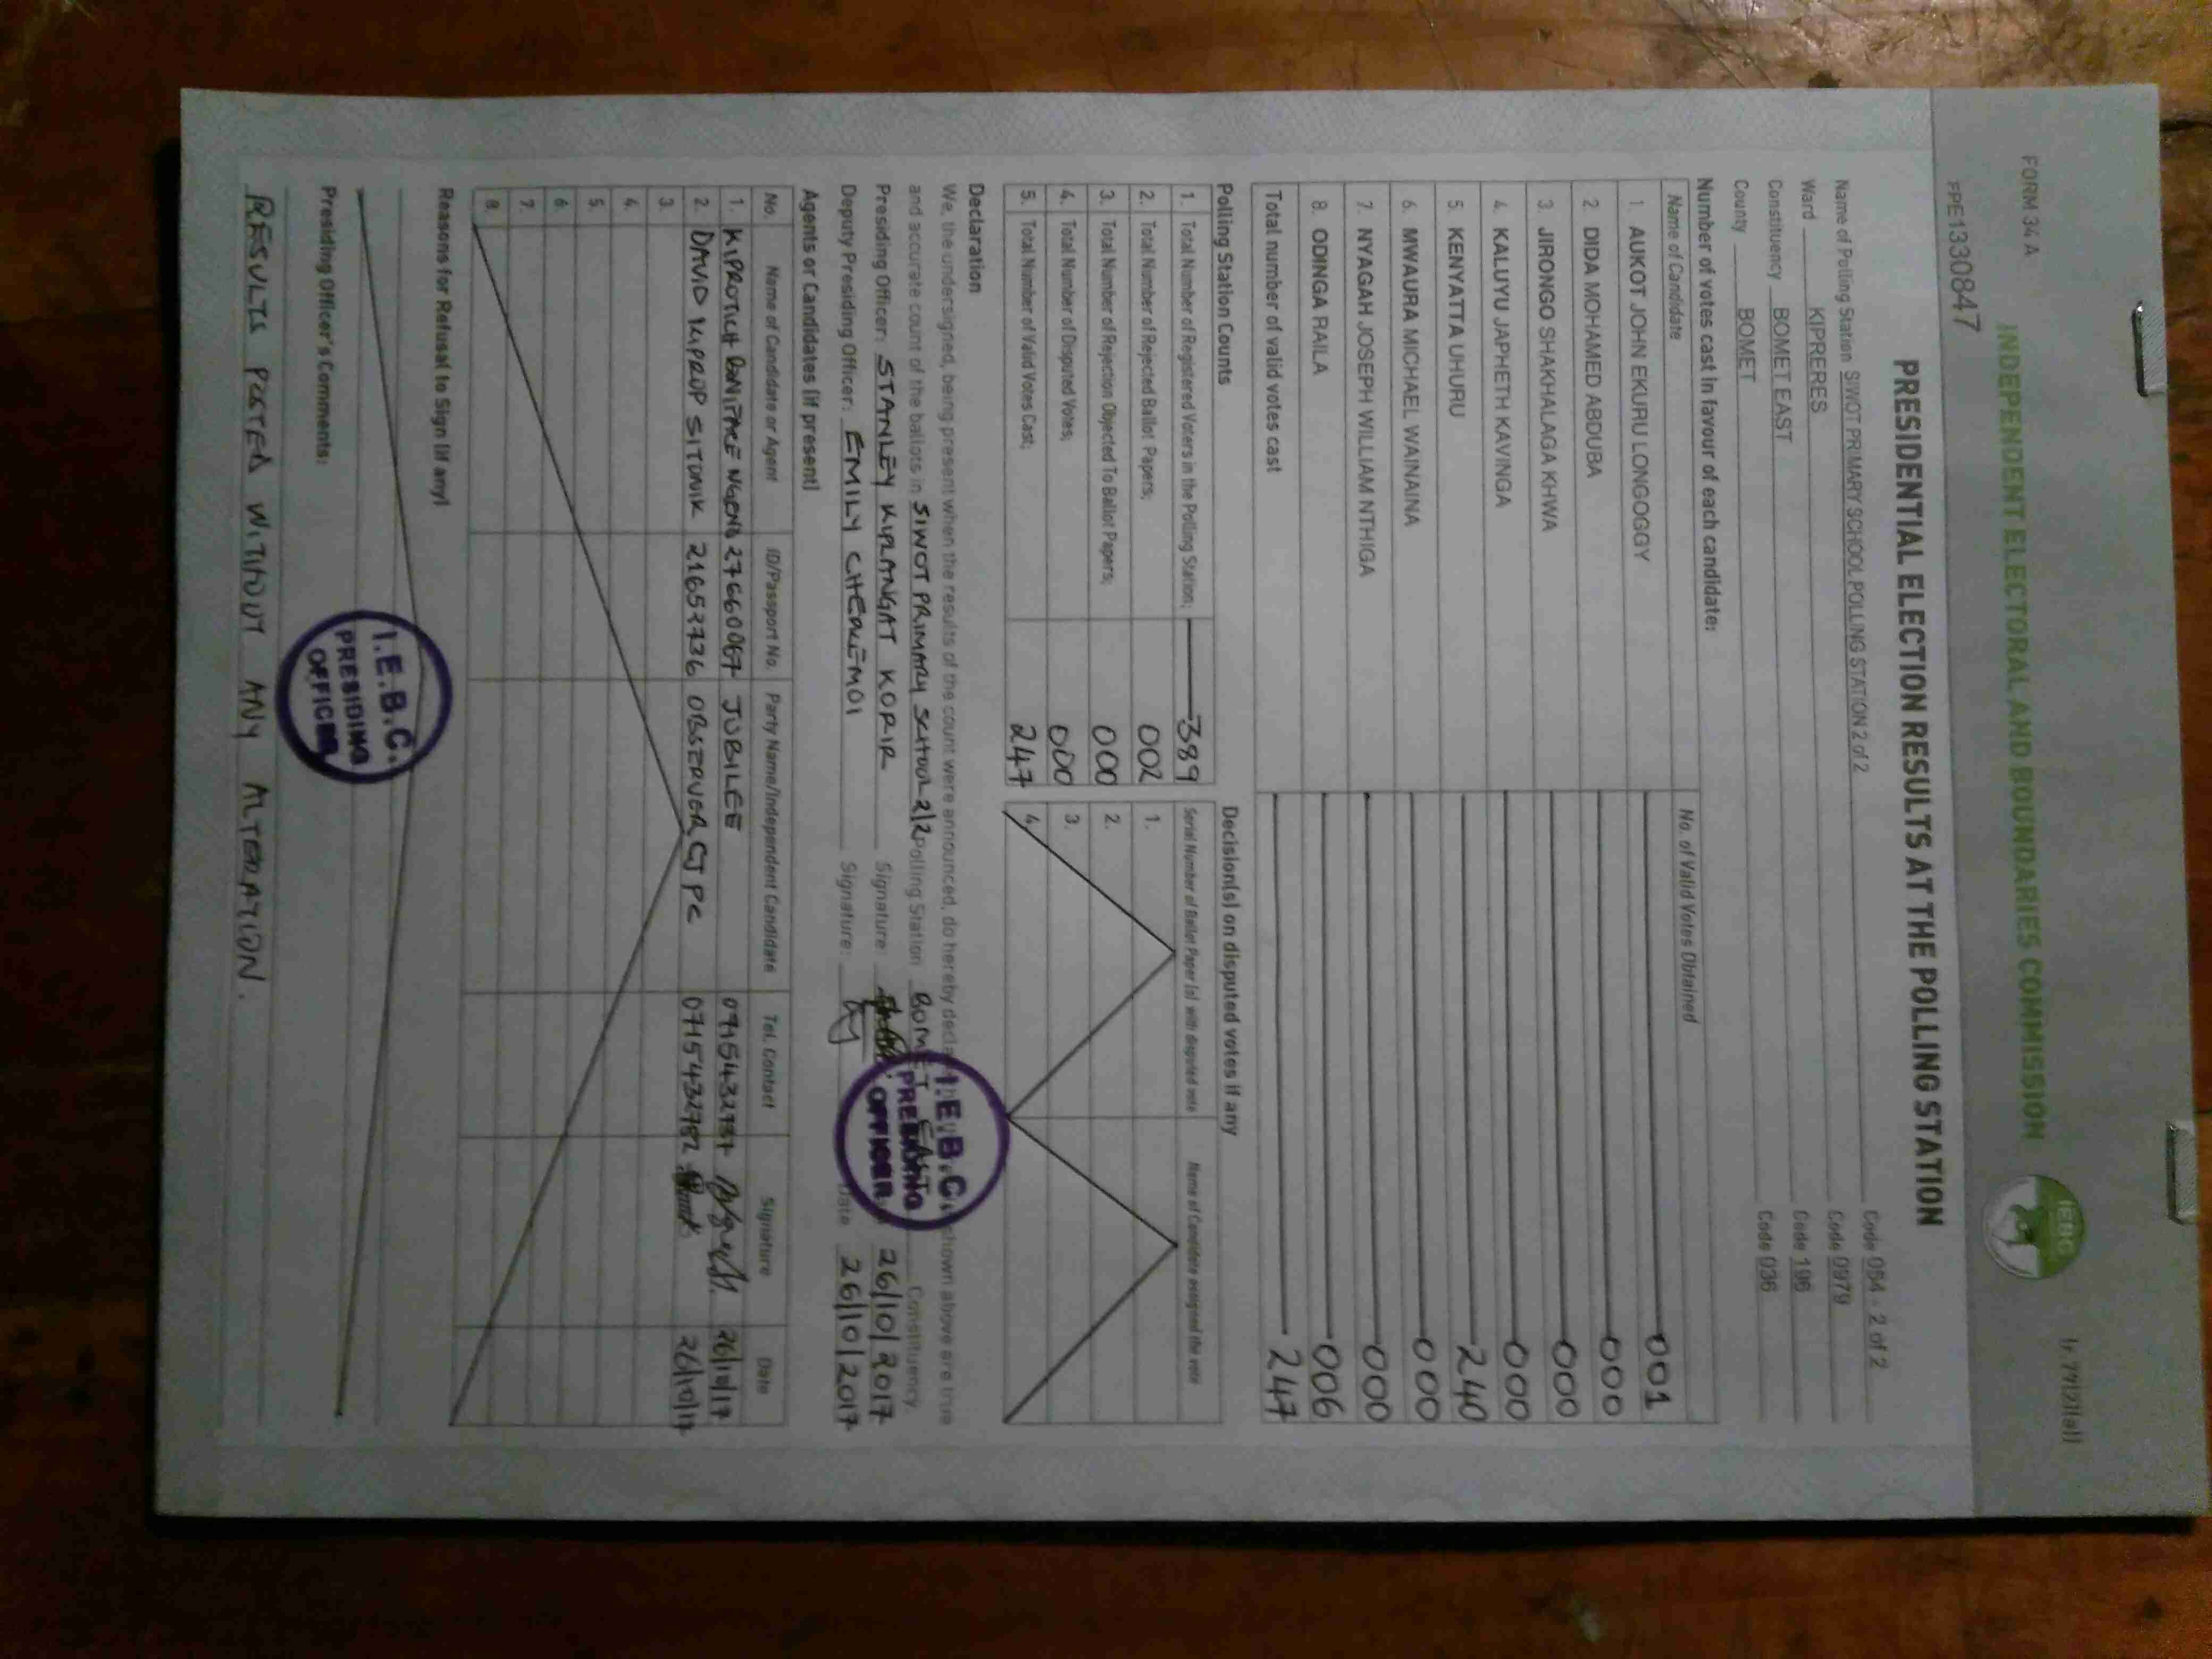 FORM 34 A
INDEPENDENT ELECTORAL AND BOUNDARIES COMMISSION
IEBC
PPE130847
PRESIDENTIAL ELECTION RESULTS AT THE POLLING STATION
Name of Polling Station SIWOT PRIMARY SCHOOL POLLING STATION 2 of 2 Code 054 - 2 of 2
Ward KIPRERES Code 0979
Constituency BOMET EAST Code 196
County BOMET Code 036
Number of votes cast in favour of each candidate:
Name of Candidate No. of Valid Votes Obtained
1. AUKOT JOHN EKURU LONGOGGY 001
2. DIDA MOHAMED ABDUBA 000
3. JIRONGO SHAKHALAGA KHWA 000
4. KALUYU JAPHETH KAVINGA 000
5. KENYATTA UHURU 240
6. MWAURA MICHAEL WAINAINA 000
7. NYAGAH JOSEPH WILLIAM NTHIGA 000
8. ODINGA RAILA 006
Total number of valid votes cast 247
Polling Station Counts
1. Total Number of Registered Voters in the Polling Station; 389
2. Total Number of Rejected Ballot Papers; 002
3. Total Number of Rejection Objected To Ballot Papers; 000
4. Total Number of Disputed Votes; 000
5. Total Number of Valid Votes Cast; 247
Decision(s) on disputed votes if any
Serial Number of Ballot Paper (s) with disputed vote Name of Candidate assigned the vote
1.
2.
3.
4.
Declaration
We, the undersigned, being present when the results of the count were announced, do hereby declare shown above are true
and accurate count of the ballots in SIWOT PRIMARY SCHOOL 2/2 Polling Station BOMET EAST Constituency.
Presiding Officer: STANLEY KIPLANGAT KORIR Signature: 26/10/2017
Deputy Presiding Officer: EMILY CHEPKEMOI Signature: Date 26/10/2017
I.E.B.C.
PRESIDING
OFFICER
Agents or Candidates (if present)
No. Name of Candidate or Agent ID/Passport No. Party Name/Independent Candidate Tel. Contact Signature Date
1. KIPROTICH BONIFACE NGENO 27660067 JUBILEE 26/10/17
2. DAVID KIPROP SITONIK 21652736 OBSERVER CJPC 0715432782 26/10/17
3.
4.
5.
6.
7.
8.
Reasons for Refusal to Sign (if any)
Presiding Officer's Comments:
I.E.B.C.
PRESIDING
OFFICER
RESULTS POSTED WITHOUT ANY ALTERATION.